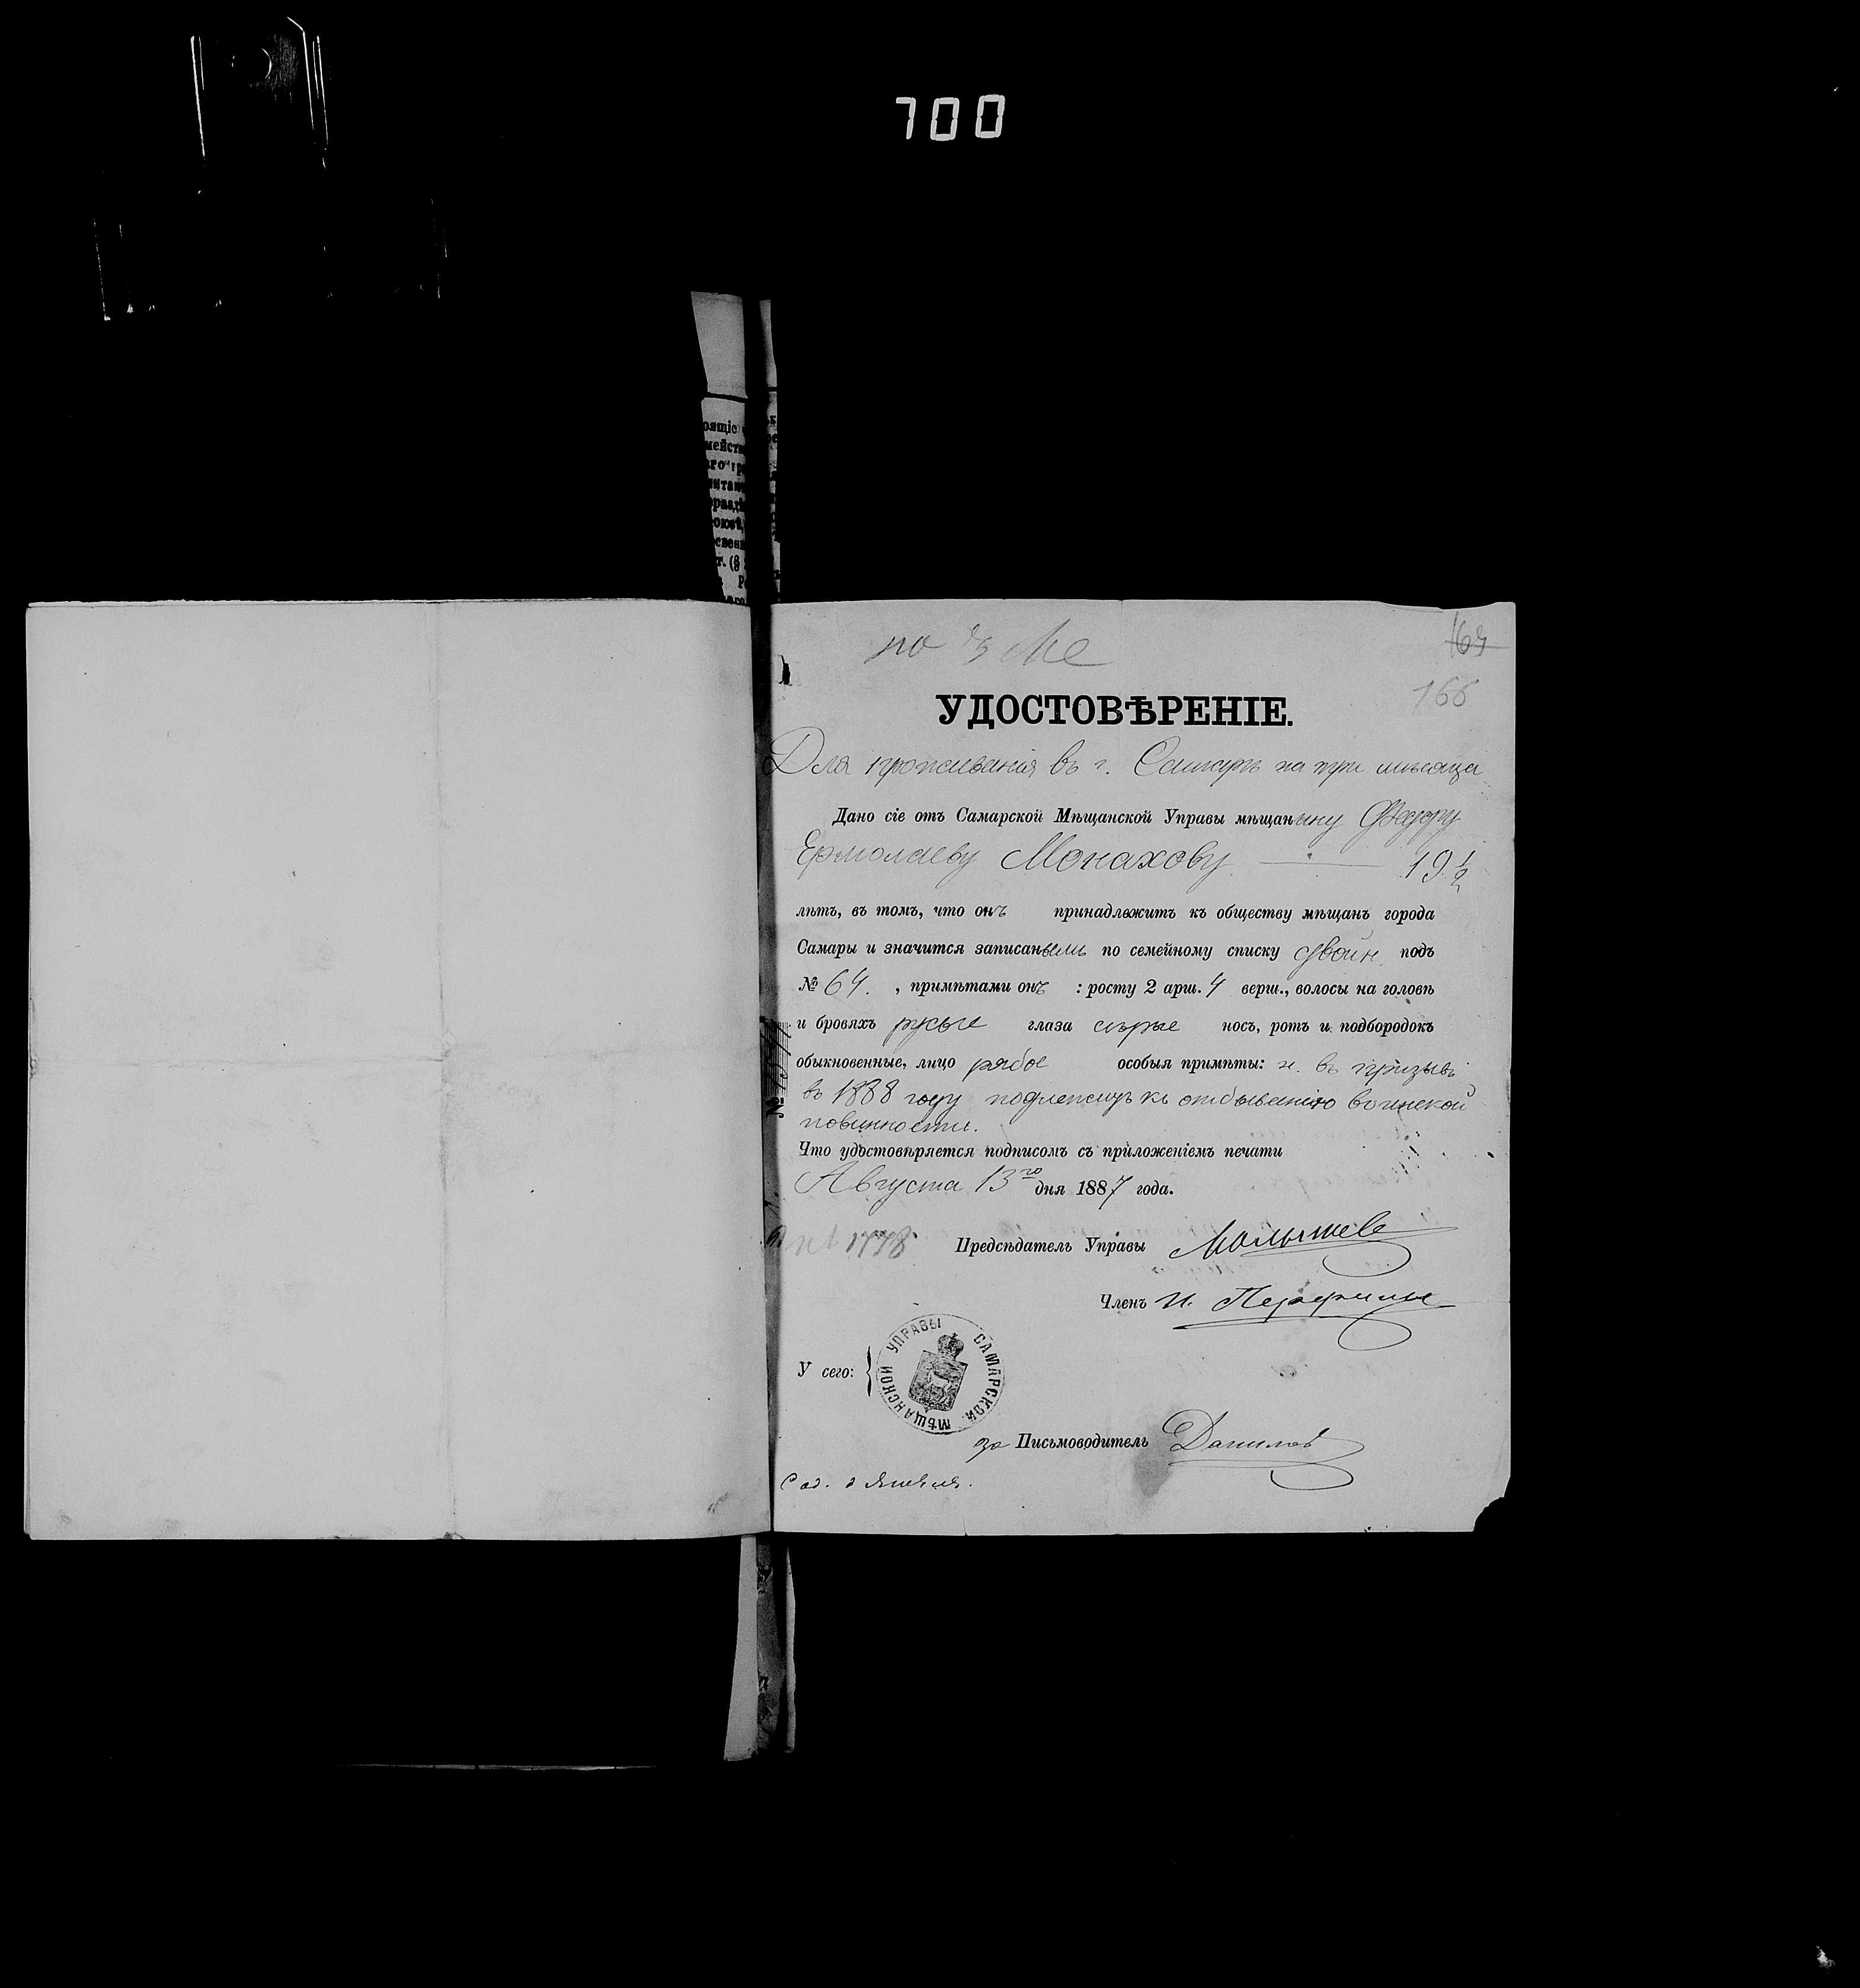 700
оящіс
мейст
165
166
УДОСТОВѢРЕНІЕ.
Для проживанія въ г. Самарѣ на три мѣсяца
Дано сіе отъ Самарской Мѣщанской Управы мѣщанину Ѳедору
Ермолаеву Монахову 19 1/2
лѣтъ, въ томъ, что онъ принадлежитъ къ обществу мѣщанъ города
Самары и значится записанымъ по семейному списку двойн. подъ
№ 64. , примѣтами онъ : росту 2 арш. 4 верш., волосы на головѣ
и бровяхъ русые глаза сѣрые носъ, ротъ и подбородокъ
обыкновенные, лицо рябое особыя примѣты: н. въ призывъ
въ 1888 году подлежитъ къ отбыванію воинской
повинности.
Что удостовѣряется подписомъ съ приложеніемъ печати
Августа 13го дня 1887 года.
1778
Предсѣдатель Управы Малышевъ
Членъ И.
У сего:
САМАРСКОЙ МѢЩАНСКОЙ УПРАВЫ
за Письмоводитель Даниловъ